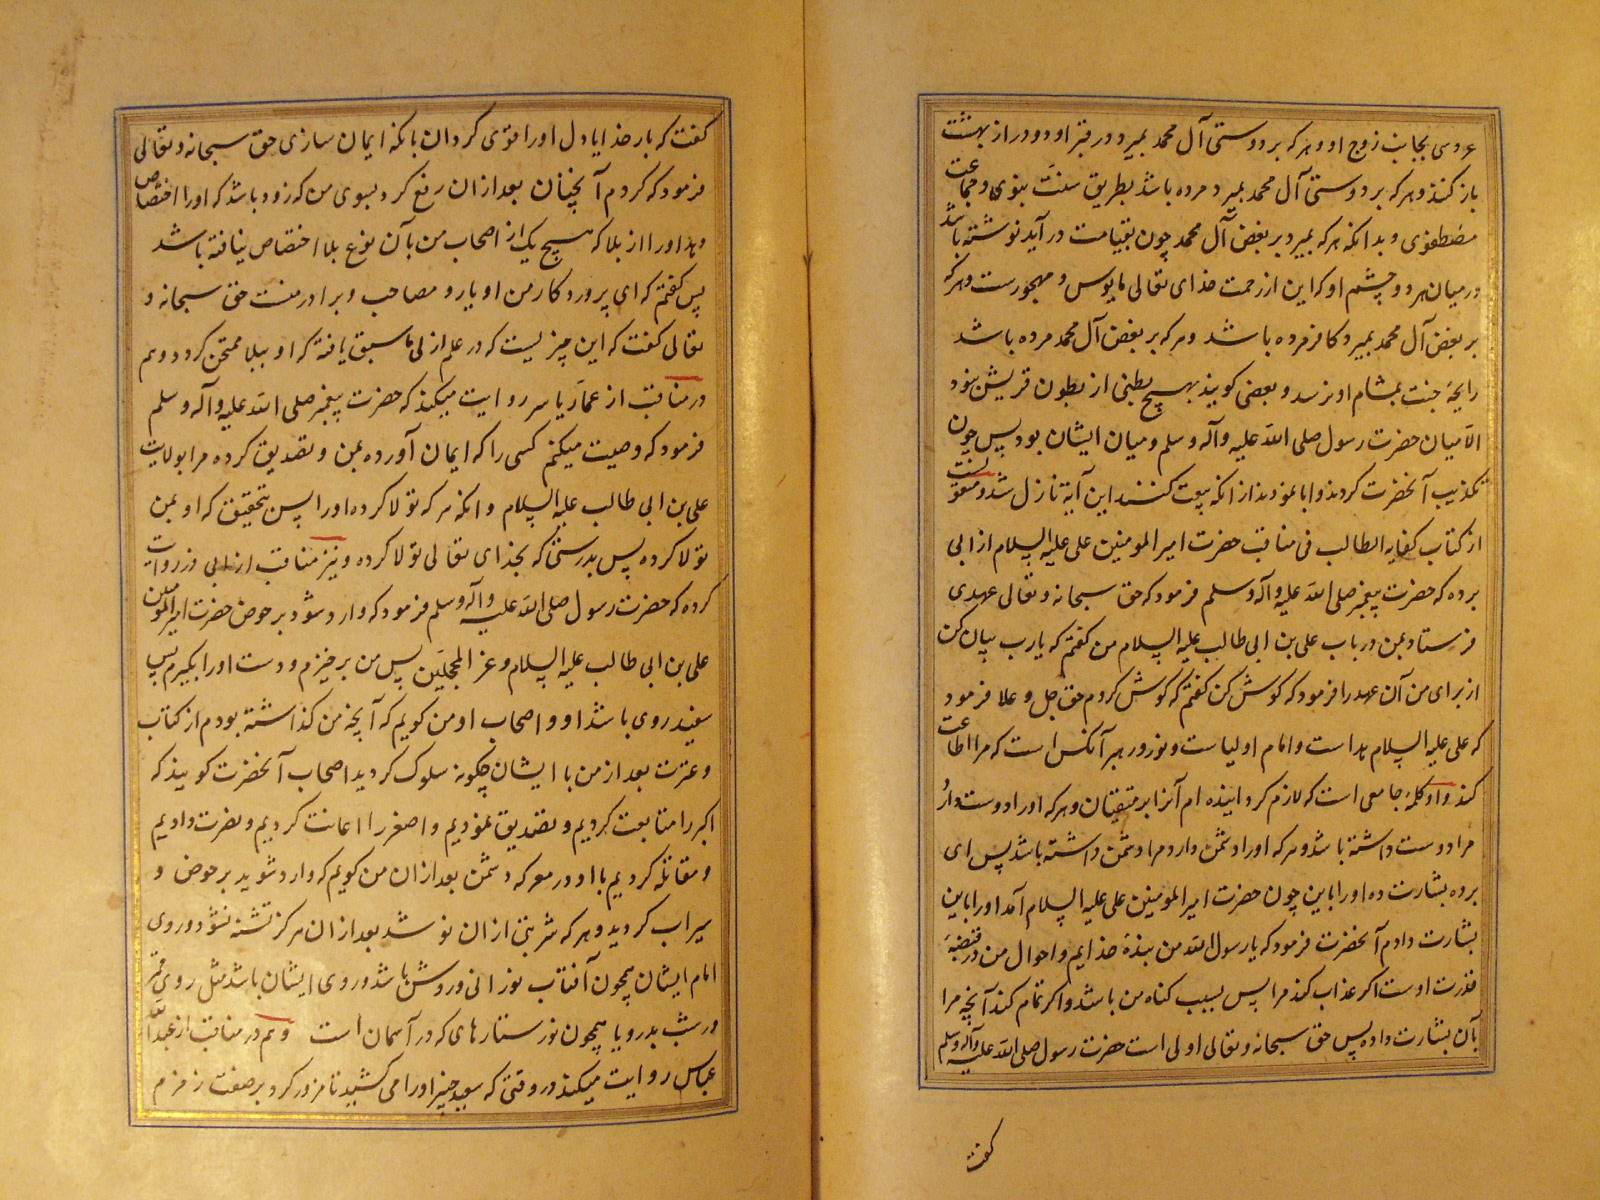 عروسی بجانب زوج او و هر که بر دوستی آل محمد بمیرد در قبر او دو در از بهشت
باز کنند و هر که بر دوستی آل محمد بمیرد مرده باشد بطریق سنت نبوی و جماعت
مصطفوی و بدانکه هر که بمیرد بر بغض آل محمد چون بقیامت در آید نوشته باشد
در میان هر دو چشم او که این از رحمت خدای تعالی مایوس و مهجورست و هر که
بر بغض آل محمد بمیرد کافر مرده باشد و هر که بر بغض آل محمد مرده باشد
رایحۀ جنت بمشام او نرسد و بعضی کویند بهیچ بطنی از بطون قریش نبود
الا میان حضرت رسول صلی الله علیه وآله وسلم و میان ایشان بود پس چون
تکذیب آنحضرت کردند و ابا نمودند از انکه بیعت کنند این آیة نازل شد و منقولست
از کتاب کفایه الطالب فی مناقب حضرت امیر المومنین علی علیه السلام از ابی
برده که حضرت پیغمبر صلی الله علیه وآله وسلم فرمود که حق سبحانه و تعالی عهدی
فرستاد بمن در باب علی بن ابی طالب علیه السلام من کفتم که یا رب بیان کن
از برای من آن عهد را فرمود که کوش کن کفتم که کوش کردم حق جل و علا فرمود
که علی علیه السلام هداست و امام اولیاست و نور و رهبر آنکس است که مرا اطاعت
کند و او کلمۀ جامعی است که لازم کردانیده ام آنرا بر متقیان و هر که او را دوست دارد
مرا دوست داشته باشد و هر که او را دشمن دارد مرا دشمن داشته باشد پس ای
برده بشارت ده او را باین چون حضرت امیر المومنین علی علیه السلام آمد او را باین
بشارت دادم آنحضرت فرمود که یا رسول الله من بندۀ خدایم و احوال من در قبضۀ
قدرت اوست اکر عذاب کند مرا پس بسبب کناه من باشد و اکر تمام کند آنچه مرا
بآن بشارت داده پس حق سبحانه و تعالی اولی است حضرت رسول صلی الله علیه وآله وسلم
کفت
کفت که بار خدایا دل او را قوی کردان بانکه ایمان سازی حق سبحانه و تعالی
فرمود که کردم آنچنان بعد از ان رفع کرد بسوی من که زود باشد که او را اختصاص
دهد او را از بلا که هیچ یک از اصحاب من بآن نوع بلا اختصاص نیافته باشد
پس کفتم که ای پروردکار من او یار و مصاحب و برادر منست حق سبحانه و
تعالی کفت که این چیزیست که در علم ازلی ما سبق یافته که او ببلا ممتحن کردد و هم
در مناقب از عمار یاسر روایت میکند که حضرت پیغمبر صلی الله علیه وآله وسلم
فرمود که وصیت میکنم کسی را که ایمان آورده بمن و تصدیق کرده مرا بولایت
علی بن ابی طالب علیه السلام و انکه هر که تولا کرده او را پس بتحقیق که او بمن
تولا کرده پس بدرستی که بخدای تعالی تولا کرده و نیز مناقب از ابی ذر روایت
کرده که حضرت رسول صلی الله علیه وآله وسلم فرمود که وارد شود بر حوض حضرت امیر المومنین
علی بن ابی طالب علیه السلام و غر المحجلین پس من برخیزم و دست او را بکیرم پس
سفید روی باشد او و اصحاب او من کویم که آنچه من کذاشته بودم از کتاب
و عترت بعد از من با ایشان چکونه سلوک کردید اصحاب آنحضرت کویند که
اکبر را متابعت کردیم و تصدیق نمودیم و اصغر را اعانت کردیم و نصرت دادیم
و مقاتله کردیم با او در معرکه دشمن بعد از ان من کویم که وارد شوید بر حوض و
سیراب کردید و هر که شربتی از ان نوشد بعد از ان هرکز تشنه نشود و روی
امام ایشان همچون آفتاب نورانی و روشن باشد و روی ایشان باشد مثل روی قمر
در شب بدر و یا همچون نور ستارهای که در آسمان است و هم در مناقب از عبدالله
عباس روایت میکند در وقتی که سعید جبیر او را می کشید تا مرور کرد بر صفت زمزم